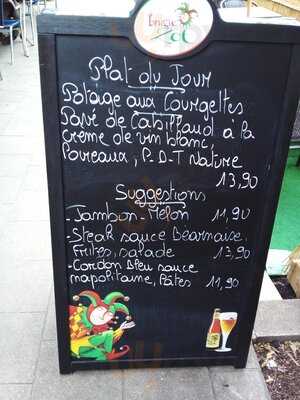 Plat du Jour
Potage aux Courgettes
Pavé de Cabillaud à la
crème de vin blanc,
Poireaux, P.D.T Nature
13,90
Suggestions
- Jambon - Melon 11,90
- Steak sauce Béarnaise,
Frites, salade 13,90
- Cordon Bleu sauce
napolitaine, Pâtes 11,90